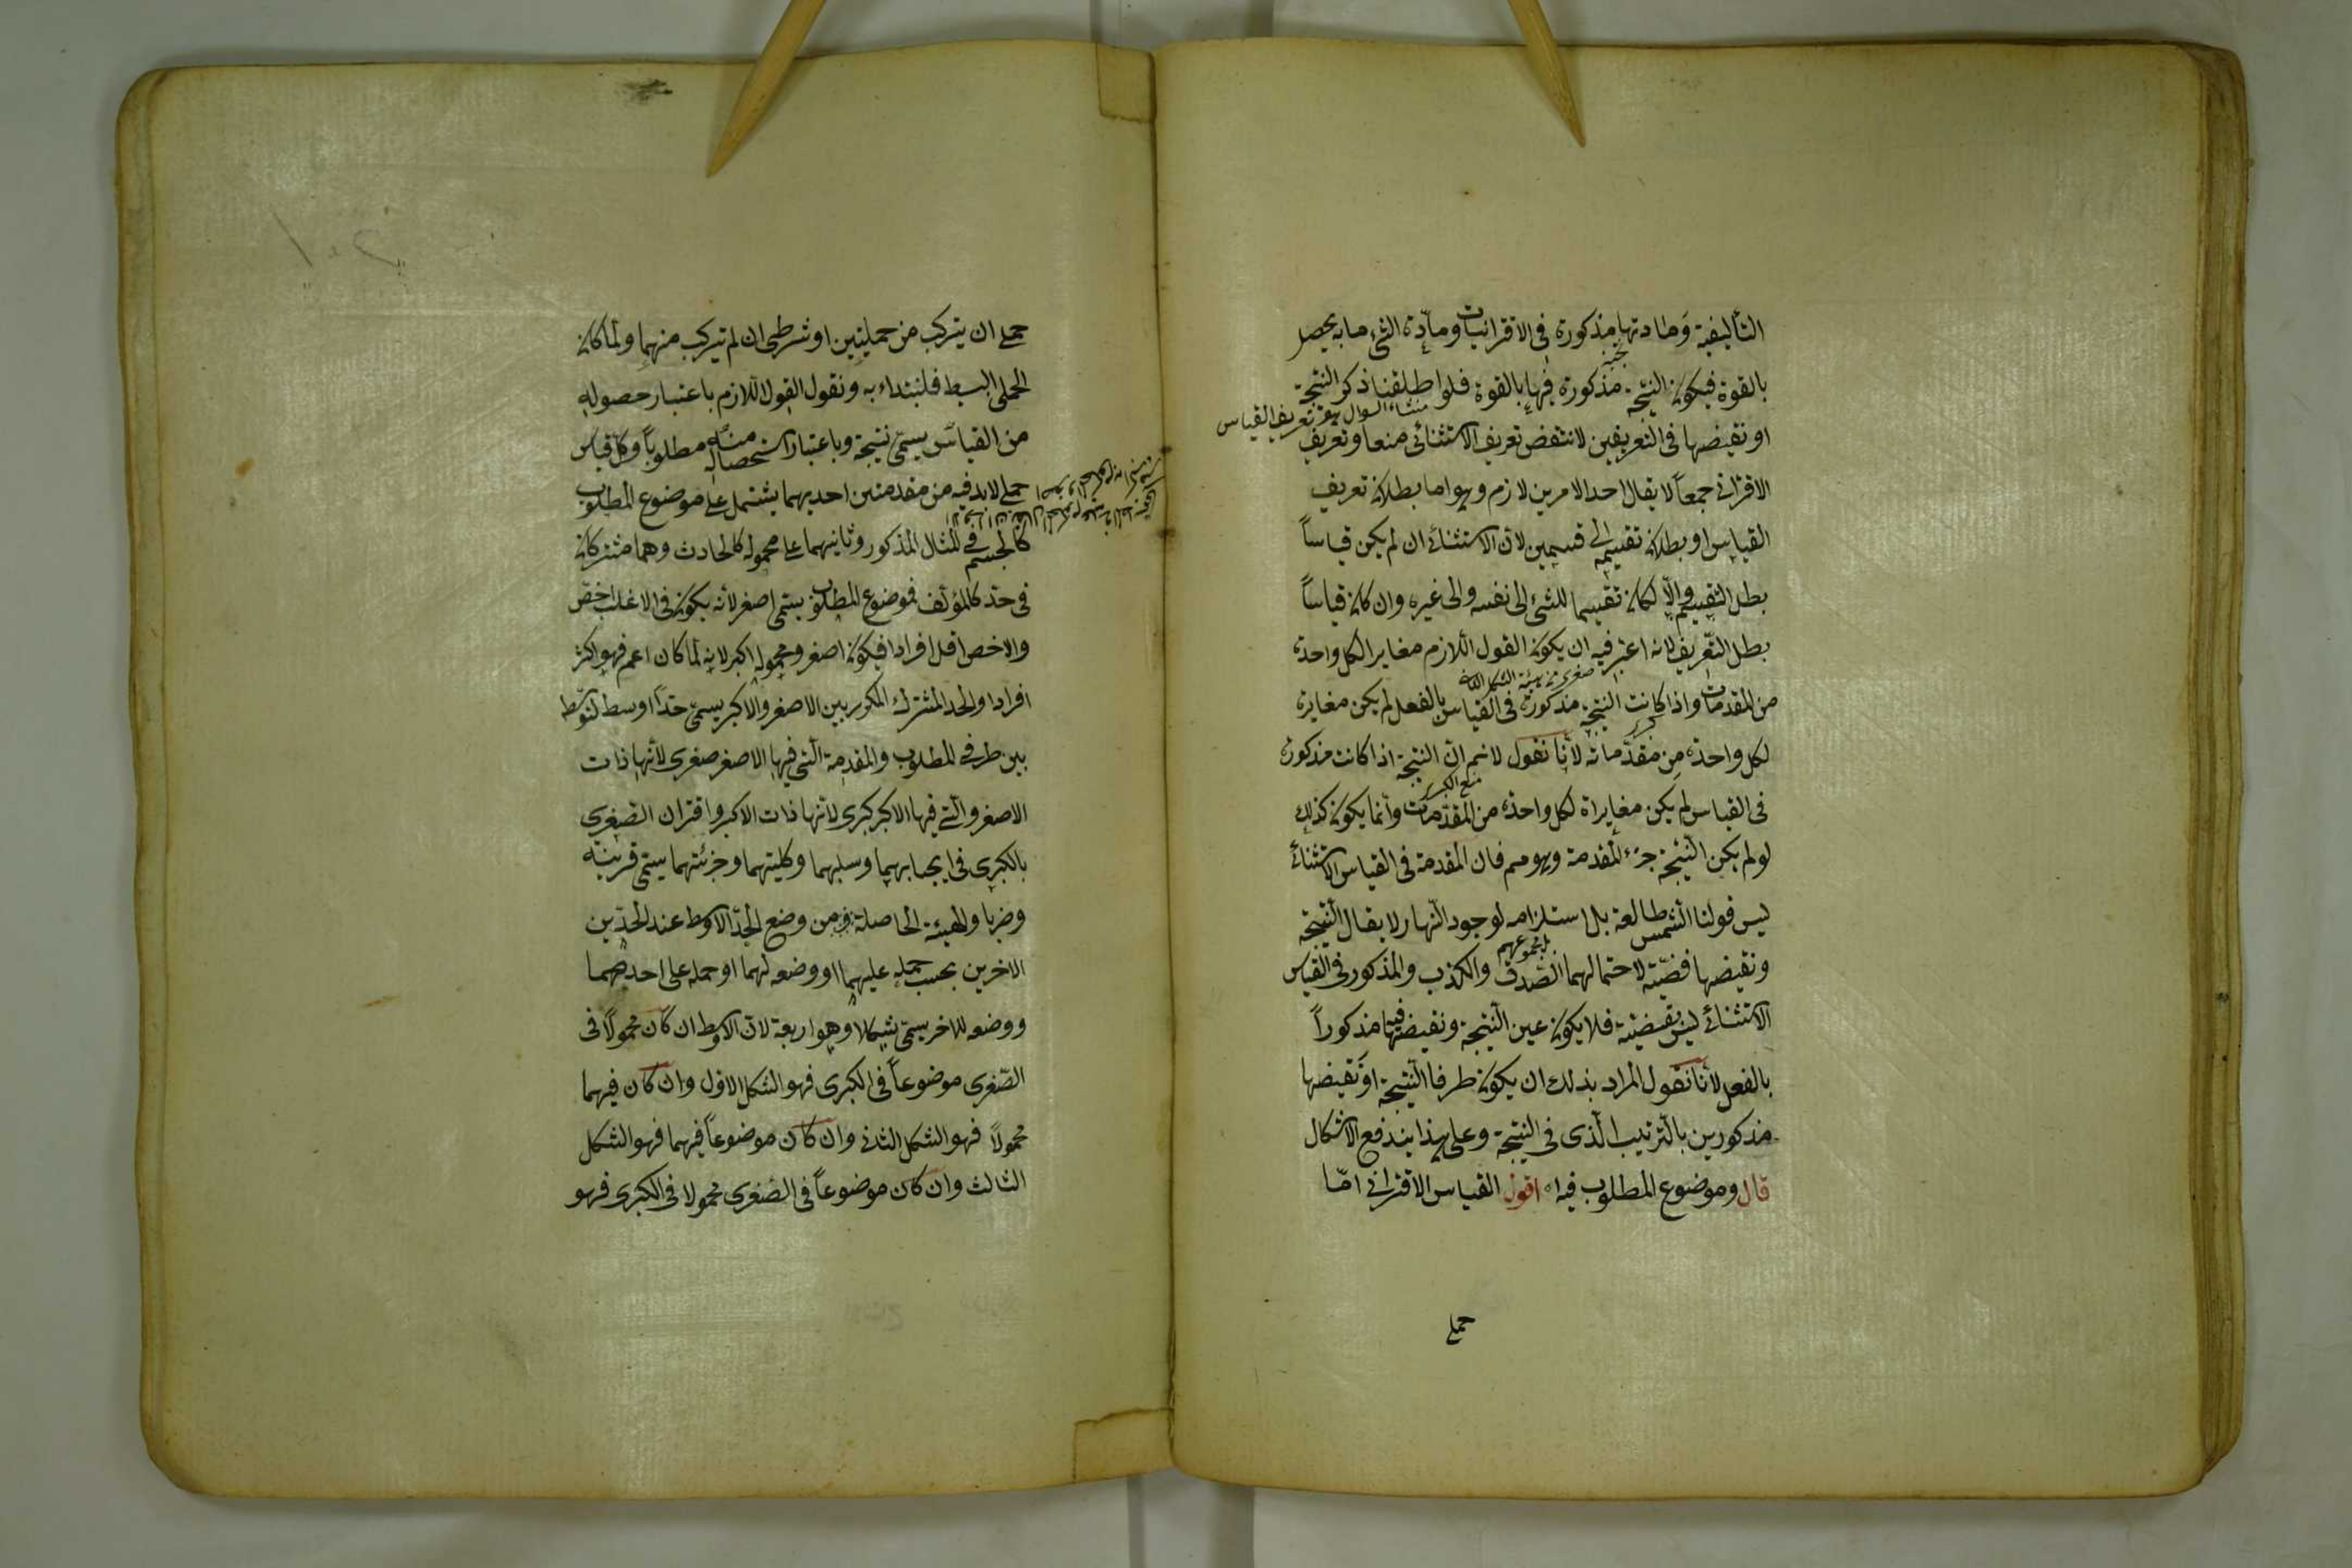 التأليفية وَمادتها مذكورة فى الاقترانيات ومادّة الشئ ما به يحصل
بالقوة فيكون النتيجة مذكورة فيها بالقوة فلو اطلقنا ذكر النتيجة
منشاء السوال هو تعريف القياس
او نقيضها فى التعريفين لانتقض تعريف الاستثنائى منعا وتعريف
الاقترانى جمعاً لا يقال احد الامرين لازم وهو اما بطلان تعريف
القياس او بطلان تقسيمه الى قسمين لان الاستثنائى ان لم يكن قياساً
بطل التقسيم والّا لكان تقسيما للشئ الى نفسه والى غيره وان كان قياساً
بطل التّعريف لانه اعتبر فيه ان يكون القول اللازم مغاير الكل واحدة
من المقدمات واذا كانت النتيجة مذكورة فى القياس بالفعل لم يكن مغايرة
لكل واحدة من مقدّماته لأنا نقول لا نم انّ النتيجة اذا كانت مذكورة
منع الكبرى
فى القياس لم يكن مغايراة لكل واحدة من المقدّمات وأنما يكون كذلك
لو لم يكن النّتيجة جزء المقدمة وهو مم فان المقدمة فى القياس الاستثنائى
ليس قولنا الشّمس طالعة بل استلزامه لوجود النّهار لا يقال النّتيجة
ونقيضها قضيّة لاحتمالهما الصّدق والكذب والمذكور فى القياس
الاستثنائى ليس بقضيّة فلا يكون عين النّتيجة ونقيضها فيها مذكوراً
بالفعل لأنا نقول المراد بذلك ان يكون طرفا النّتيجة او نَقيضها
مذكورين بالتّرتيب الّذى فى النتيجة وعلى هذا يندفع الاشكال
قال وموضوع المطلوب فيه اه اقول القياس الاقترانى امّا
حملى
حملى ان يتركب من حمليتين او شرطى ان لم يتركب منهما ولما كان
الحملى البسيط فلنبتداء به ونقول القول اللازم باعتبار حصوله
من القياس يسمّى نتيجة وباعتبار استحصاله منه مطلوباً وكل قياس
حملى لابد فيه من مقدمتين احديهما يشتمل على موضوع المطلوب
كالجسم فى المثال المذكور وثانيهما على محموله كالحادث وهما مشتركان
فى حدّ كالمؤلف فموضوع المطلوب يسمّى اصغر لأنه يكون فى الاغلب اخصّ
والاخص اقل افرادا فيكون اصغر ومحموله اكبر لانه لما كان اعم فهو اكثر
افرادا والحد المشترك المكرر بين الاصغر والاكبر يسمّى حدّا اوسط لتوسّط
بين طرفى المطلوب والمقدمة الّتى فيها الاصغر صغرى لأنها ذات
الاصغر والّتى فيها الاكبر كبرى لأنها ذات الاكبر واقتران الصّغرى
بالكبرى فى ايجابهما وسلبهما وكليتهما وجزئتهما يسمّى قرينة
وضربا والهيئة الحاصلة من وضع الحدّ الاوسط عند الحدّين
الاخرين بحسب حمله عليهما او وضعه لهما او حمله على احدهما
ووضعه للاخر يسمّى شكلا وهو اربعة لان الاوسط ان كان محمولًا فى
الصّغرى موضوعاً فى الكبرى فهو الشكل الاول وان كان فيهما
محمولاً فهو الشكل الثانى وان كان موضوعاً فيهما فهو الشكل
الثالث وان كان موضوعاً فى الصّغرى محمولا فى الكبرى فهو